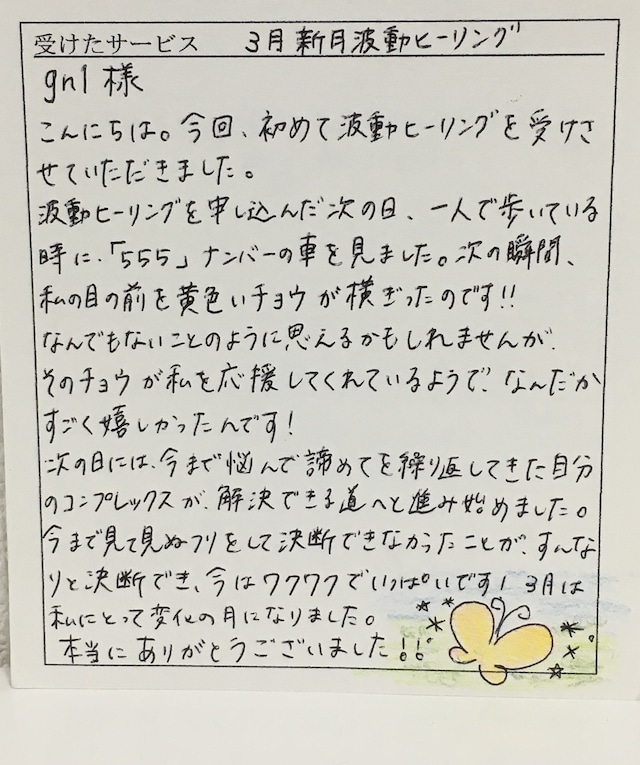 受けたサービス 3月新月波動ヒーリング
gnl様
こんにちは。今回、初めて波動ヒーリングを受けさ
せていただきました。
波動ヒーリングを申し込んだ次の日、一人で歩いている
時に、「555」ナンバーの車を見ました。次の瞬間、
私の目の前を黄色いチョウが横ぎったのです!!
なんでもないことのように思えるかもしれませんが、
そのチョウが私を応援してくれているようで、なんだか
すごく嬉しかったんです!
次の日には、今まで悩んで諦めてを繰り返してきた自分
のコンプレックスが、解決できる道へと進み始めました。
今まで見て見ぬフリをして決断できなかったことが、すんな
りと決断でき、今はワクワクでいっぱいです! 3月は
私にとって変化の月になりました。
本当にありがとうございました!!